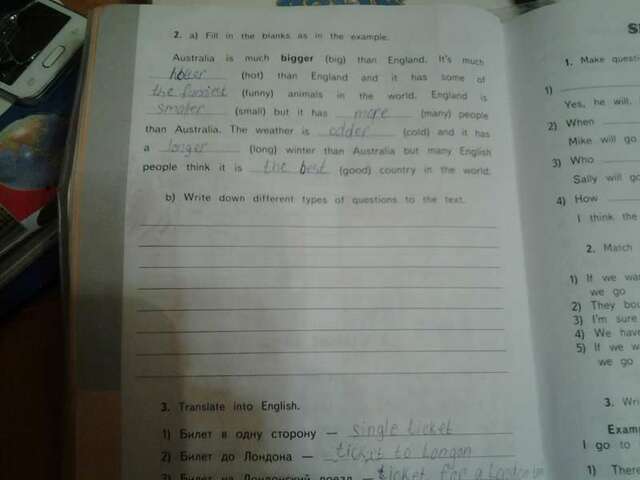 2. a) Fill in the blanks as in the example.
Australia is much bigger (big) than England. It's much
(hot) than England and it has some of
the funniest (funny) animals in the world. England is
smaler (small) but it has more (many) people
than Australia. The weather is colder (cold) and it has
a longer (long) winter than Australia but many English
people think it is the best (good) country in the world.
b) Write down different types of questions to the text.
3. Translate into English.
1) Билет в одну сторону — single ticket
2) Билет до Лондона — ticket to London
3) Билет на Лондонский поезд — ticket for a
1. Make
1)
Yes, he will.
2) When
Mike will go
3) Who
Sally will go
4) How
I think the
2. Match
1) If we
we go
2) They
3) I'm sure
4) We have
5) If we
we go
3.
I go to
1) There